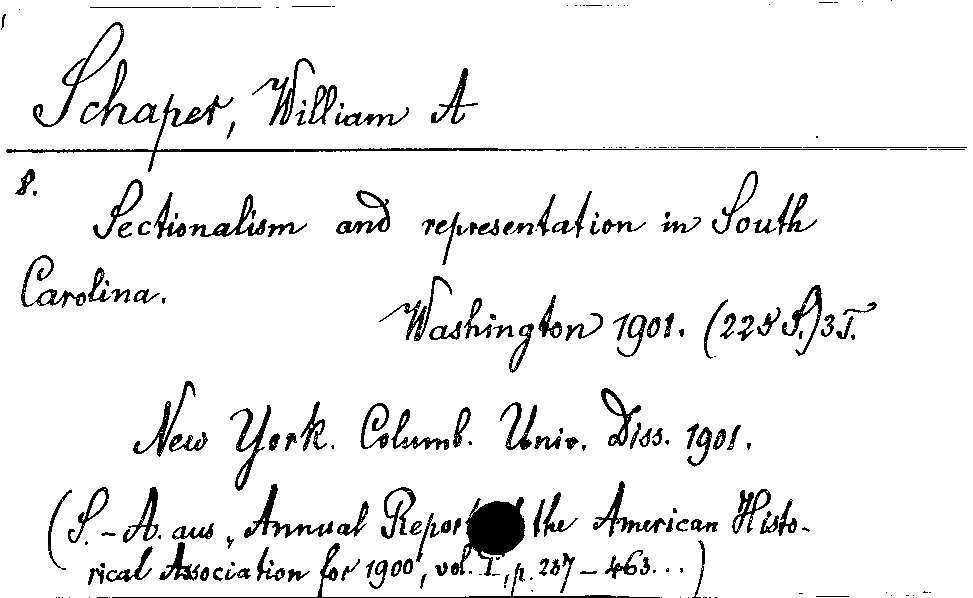 Schaper, William A
8.
Sectionalism and representation in South
Carolina.
Washington 1901. (225 S.) 3 T.
New York. Columb. Univ. Diss. 1901.
(S.-A. aus „Annual Report the American Histo-
rical Association for 1900", vol. I, p. 237-463...)